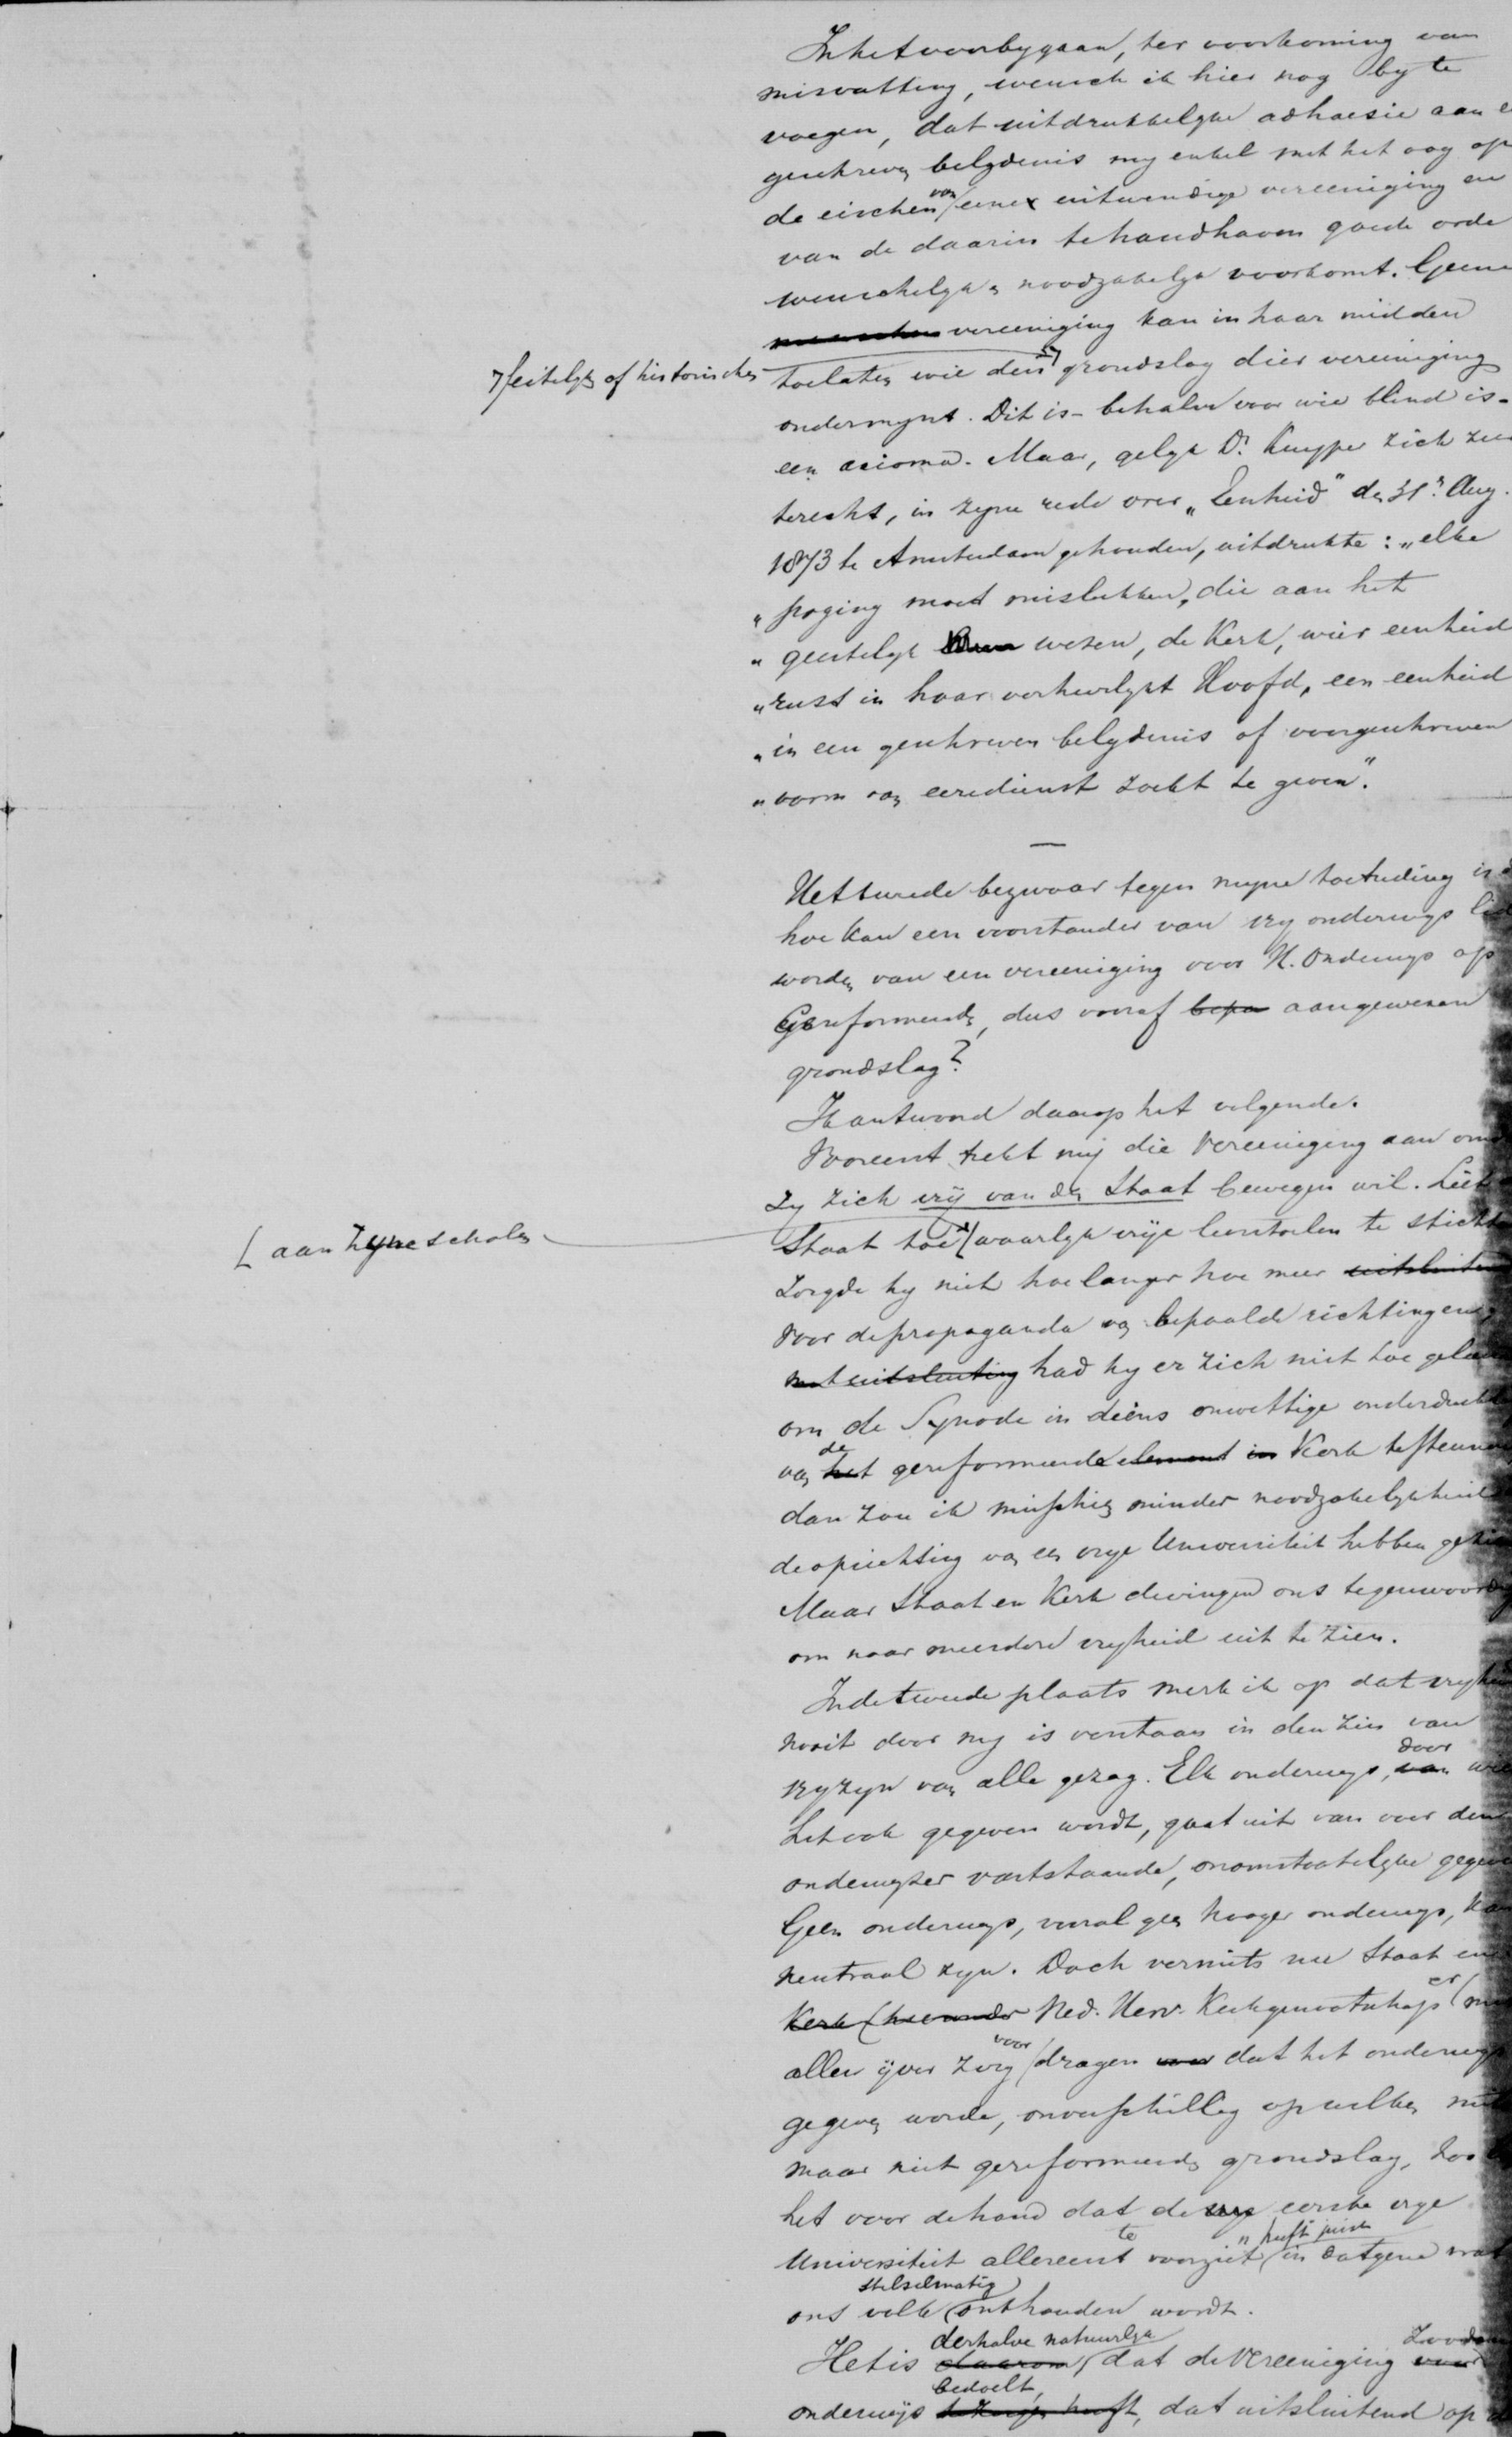 In het voorbygaan, ter voorkoming van
misvatting, wensch ik hier nog by te
voegen, dat uitdrukkelyke adhaesie aan e
geschreven belydenis my enkel met het oog op
de eischen van eener uitwendige vereeniging en
van de daarin te handhaven goede orde
wenschelyk, noodzakelyk voorkomt. Geene
vereeniging kan in haar midden
feitelyke of historischen
toelaten wie den grondslag dier vereeniging
ondermynt. Dit is - behalve voor wie blind is -
een axioma. Maar, gelyk Dr. Kuyper zich zeer
terecht, in zyne rede over „Eenheid" den 31n. Aug.
1873 te Amsterdam gehouden, uitdrukte: „elke
„poging moet mislukken, die aan het
„geestelyk wezen, de Kerk, wier eenheid
„rust in haar verheerlykt Hoofd, een eenheid
„in een geschreven belydenis of voorgeschreven
„vorm van eeredienst zoekt te geven".
—
Het tweede bezwaar tegen myne toetreding is
hoe kan een voorstander van vry onderwys lid
worden van een vereeniging voor H. Onderwys op
Gereformeerde, dus vooraf bepa aangewezen
grondslag?
Ik antwoord daarop het volgende.
Vooreerst trekt mij die Vereeniging aan om
zy zich vrij van den Staat bewegen wil. Liet
[ aan zyne scholen
Staat toe waarlyk vrije leerstoelen te sticht
zorgde hy niet hoe langer hoe meer uitsluitend
voor de propaganda van bepaalde richtingen,
met uitsluiting had hy er zich niet toe gel
om de Synode in diens onwettige onderdrukk
van het de gereformeerde element in Kerk te steunen
dan zou ik misschien minder noodzakelykheid
de oprichting van een vrye Universiteit hebben gez
Maar Staat en Kerk dwingen ons tegenwoordig
om naar meerdere vryheid uit te zien.
In de tweede plaats merk ik op dat vryheid
nooit door my is verstaan in den zin van
vryzyn van alle gezag. Elk onderwys, van door wie
het ook gegeven wordt, gaat uit van voor den
onderwyzer vaststaande, onomstootelyke gegeve
Geen onderwys, vooral geen hooger onderwys, kan
neutraal zyn. Doch vermits nu Staat en
Kerk (hieronder Ned. Herv. Kerkgenootschap er met
allen ijver zorg voor dragen dat het onderwys
gegeven worde, onverschillig op welken
maar niet gereformeerde grondslag, zoo
het voor de hand dat de vrye eerste vrye
Universiteit allereerst te voorzien heeft juist in datgene wat
ons volk stelselmatig onthouden wordt.
Het is daarom derhalve natuurlyk dat de Vereeniging
onderwijs bedoelt, te zorgen heeft, dat uitsluitend op